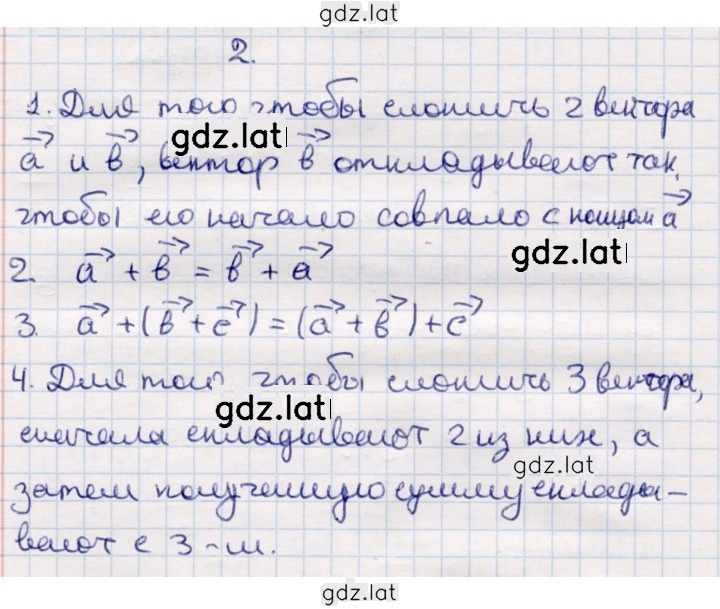 gdz.lat
2.
1. Для того чтобы сложить 2 вектора
gdz.lat
a⃗ и в⃗, вектор в⃗ откладывают так,
чтобы его начало совпало с концом a⃗
gdz.lat
2. a⃗ + в⃗ = в⃗ + a⃗
3. a⃗ + (в⃗ + c⃗) = (a⃗ + в⃗) + c⃗
4. Для того чтобы сложить 3 вектора,
gdz.lat
сначала складывают 2 из них, а
gdz.lat
затем полученную сумму склады-
вают с 3-м.
gdz.lat